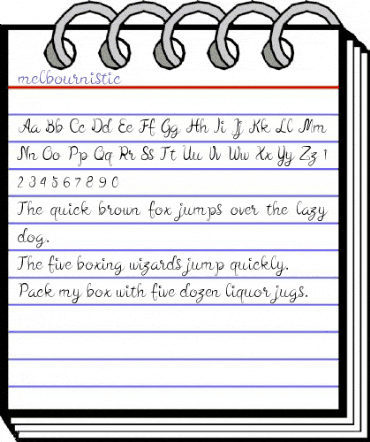 melbournistic
Aa Bb Cc Dd Ee Ff Gg Hh Ii Jj Kk Ll Mm
Nn Oo Pp Qq Rr Ss Tt Uu Vv Ww Xx Yy Zz 1
2 3 4 5 6 7 8 9 0
The quick brown fox jumps over the lazy
dog.
The five boxing wizards jump quickly.
Pack my box with five dozen liquor jugs.